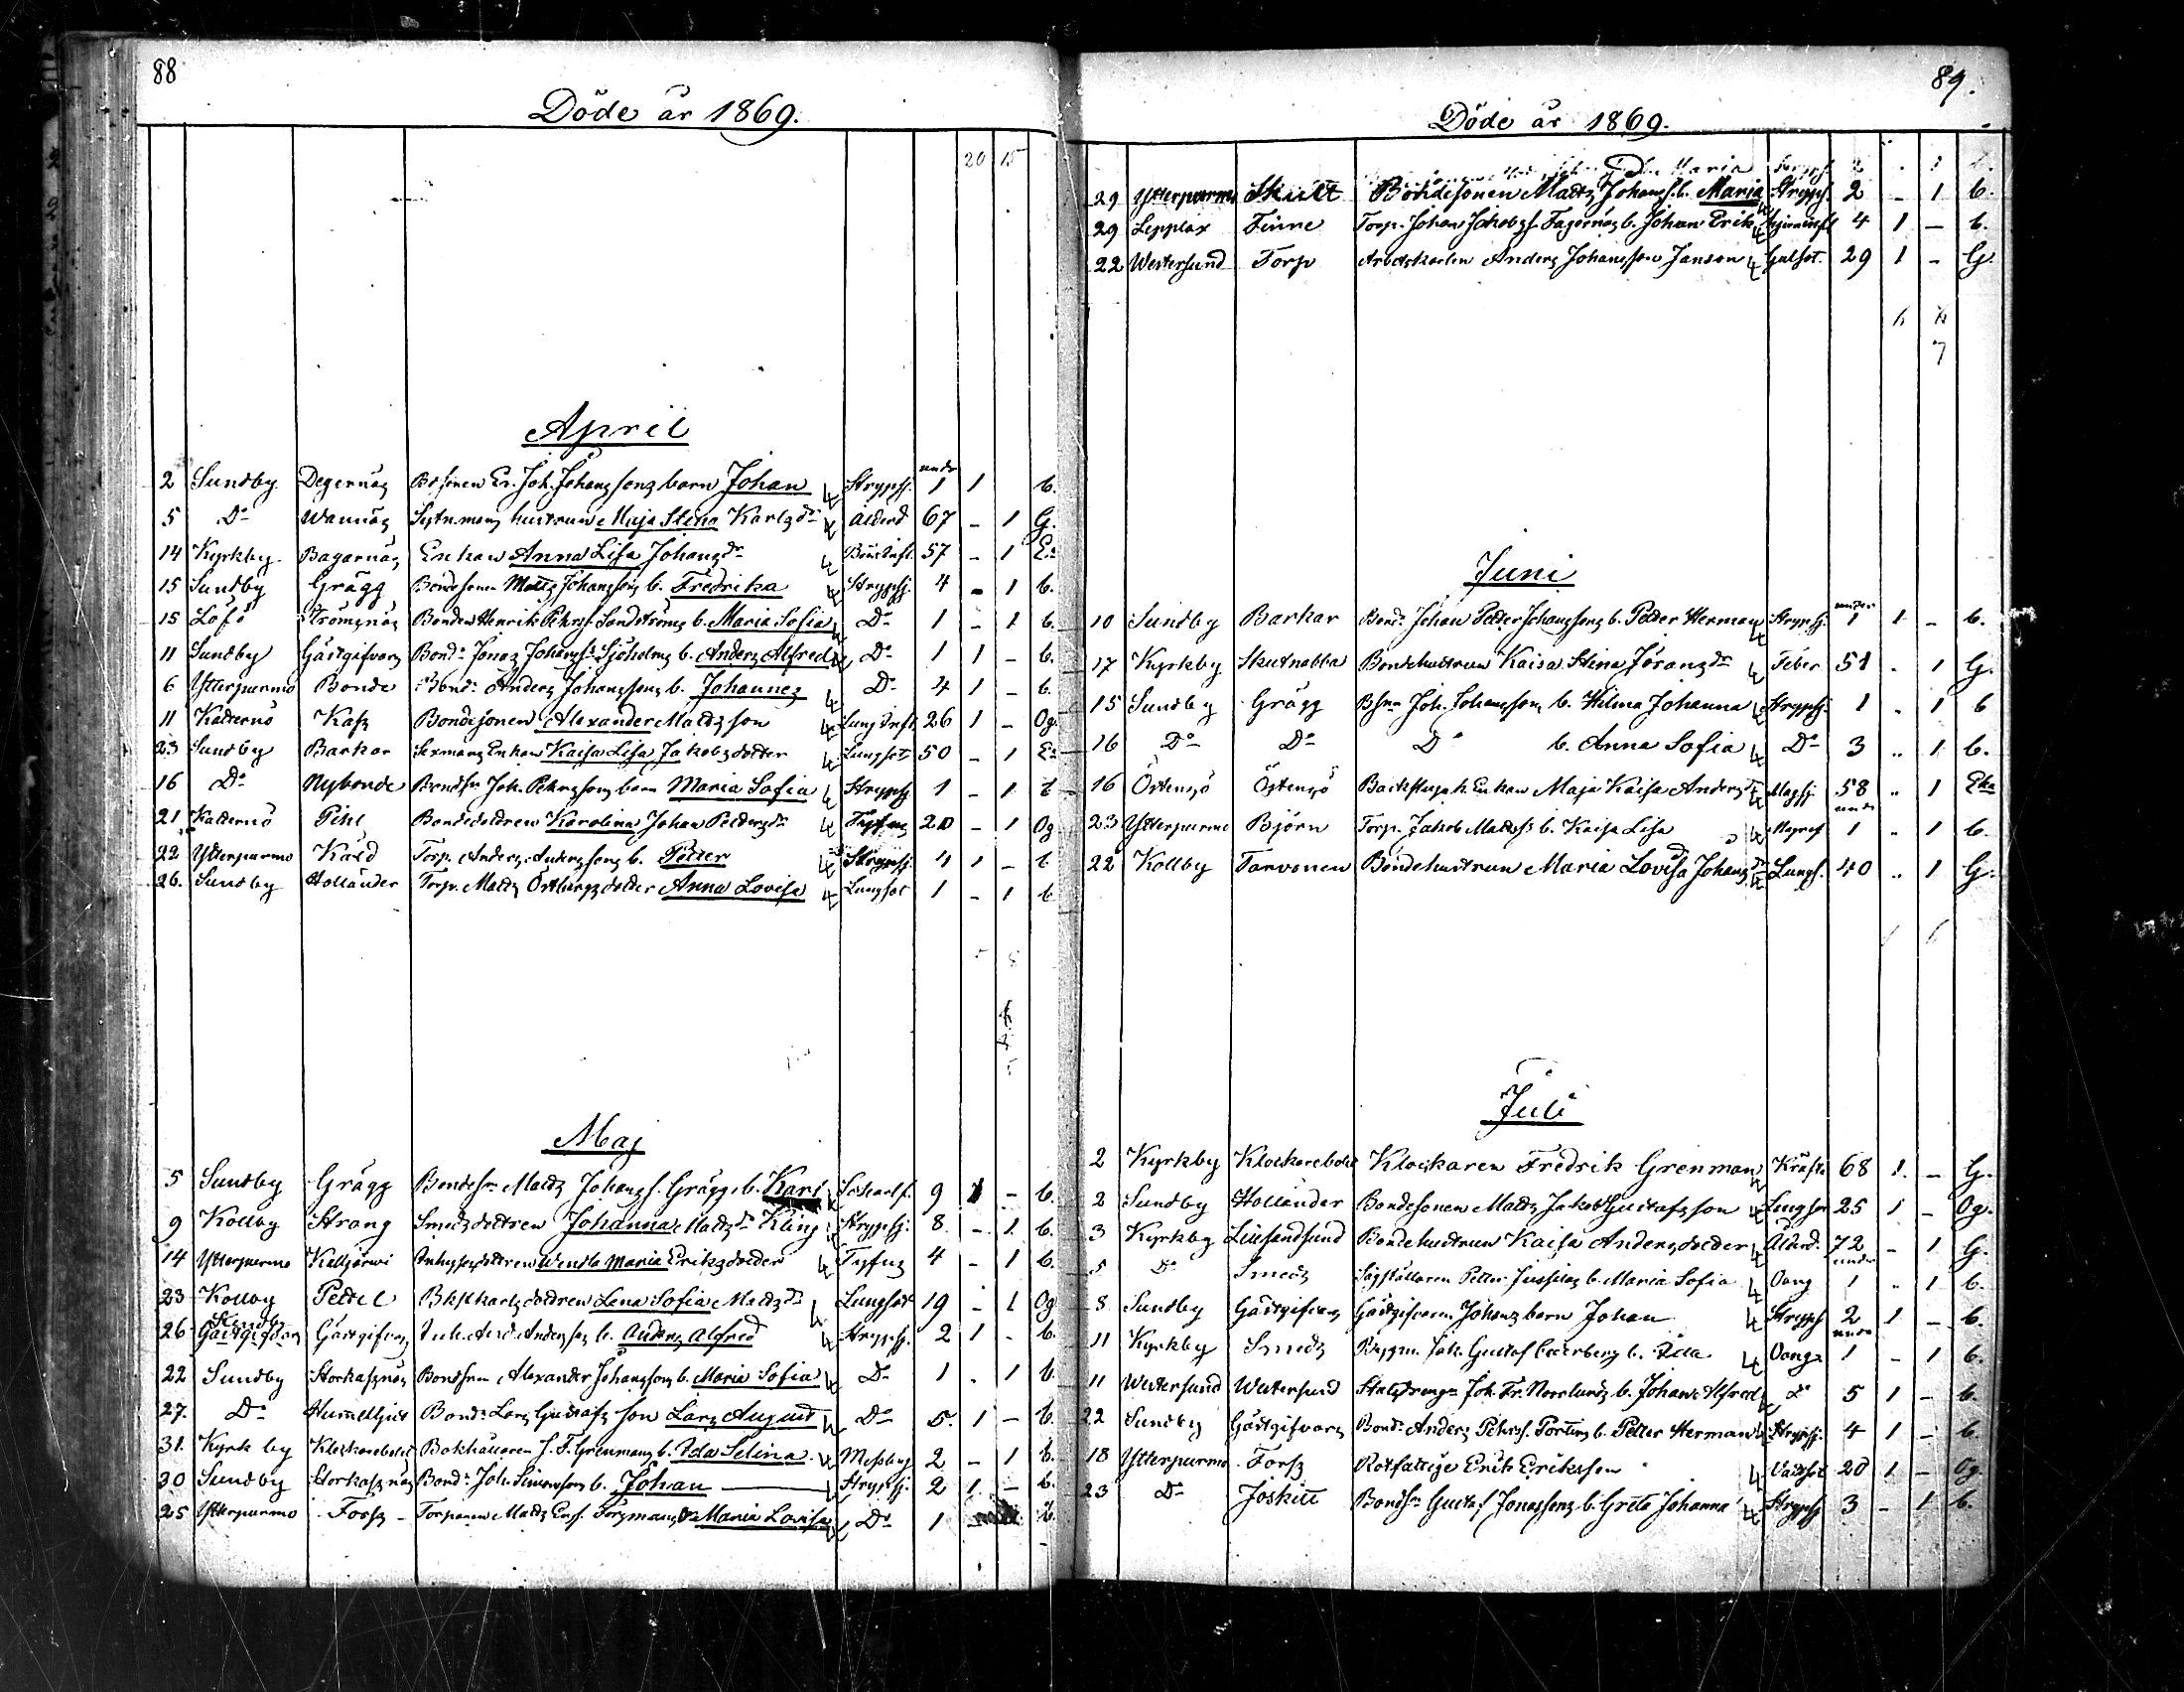 88
Döde år 1869.
20 15
April
2 Sundby Degernäs Bdsonen Er. Joh. Johanssons barn Johan Strypsj. under 1 1 b.
5 Do Wannäs hustrun Maja Stena Karlsdr Ålderd 67 - 1 G.
14 Kyrkby Bagarnäs Enkan Anna Lisa Johansdr 57 - 1 En
15 Sundby Grägg Bondesonen Matts Johanssons b. Fredrika Strypsj 4 - 1 b.
15 Löfö Strömsnäs Bonden Henrik Pehrss. Sandströms b. Maria Sofia Do 1 - 1 b.
11 Sundby Gästgifvars Bond. Jonas Johanss. Sjöholms b. Anders Alfred Do 1 1 - b.
6 Ytterpurmo Bonde Bond. Anders Johanssons b. Johannes Do 4 1 - b.
11 Katternö Kass Bondesonen Alexander Mattsson Lunginfl. 26 1 - Og
23 Sundby Barkar Sexmans Enkan Kaisa Lisa Jakobsdotter Lungsot 50 - 1 En
16 Do Nybonde Bondsn Joh. Pehrssons barn Maria Sofia Strypsj 1 - 1 b
21 Katternö Pihl Bondedottren Karolina Johan Pettersdr Tyfus 20 - 1 Og
22 Ytterpurmo Kald Torp. Anders Anderssons b. Petter Strypsj. 4 1 - b
26. Sundby Holländer Torp. Matts Östbergs dotter Anna Lovisa Lungsot 1 - 1 b
Maj
5 Sundby Grägg Bondesn Matts Johanss. Grägg b. Karl Scharl f. 9 1 - b.
9 Kollby Strang Smedsdottren Johanna Mattsdr Kling Strypsj. 8 - 1 b.
14 Ytterpurmo Kalljärvi Inhysesdottren Wendla Maria Eriksdotter Tyfus 4 - 1 b.
23 Kollby Pettel Bkstkarlsdottren Lena Sofia Mattsdr Lungsot 19 - 1 Og
Sundby
26 Gästgifvars Gästgifvars Inh. And. Anderssons b. Anders Alfred Strypsj. 2 1 - b.
22 Sundby Storkassnäs Bondsnn Alexander Johanssons b. Maria Sofia Do 1 - 1 b
27. Do Bond. Lars Gustafsson Lars August Do 5. 1 - b.
31. Kyrkby Klockarebolet Bokhållaren J. F. Grenmans b. Ida Selina Messling 2 - 1 b.
30 Sundby Storkassnäs Bond. Joh. Simonssons b. Johan Strypsj. 2 1 - b.
25 Ytterpurmo Forss Torparen Matts Ers. Forsmans dr Maria Lovisa Do 1 - b.
89.
Döde år 1869.
29 Ytterpurmo Skutt Bondesonen Matts Johanss. b. Maria Strypsj. 2 - 1 b.
29 Lepplax Finne Torp. Johan Jakobss. Fagernäs b. Johan Erik 4 1 - b.
22 Westersund Torp Arbetskarlen Anders Johansson Janson Gulsot. 29 1 - G.
6
7
Juni
10 Sundby Barkar Bond. Johan Petter Johanssons b. Petter Herman Strypsj. under 1 1 - b.
17 Kyrkby Skutnabba Bondehustrun Kaisa Stina Jöransdr Feber 51 - 1 G.
15 Sundby Grägg Bsnn Joh. Johanssons b. Hilma Johanna Strypsj. 1 - 1 b
16 Do Do Do b. Anna Sofia Do 3 - 1 b.
16 Östensö Östensö Backstuguh. Enkan Maja Kaisa Andersdr Magsj. 58 - 1 Eka
23 Ytterpurmo Björn Torp. Jakob Mattss b. Kaisa Lisa under 1 - 1 b.
22 Kollby Tarvonen Bondehustrun Maria Lovisa Johansdr Lungs. 40 - 1 G.
Juli
2 Kyrkby Klockarebolet Klockaren Fredrik Grenman Kräfta 68 1 - G.
2 Sundby Holländer Bondesonen Matts Jakob Gustafsson Lungsot 25 1 - Og.
3 Kyrkby Liusandsund Bondehustrun Kaisa Andersdotter Ålderd. 72 - 1 G.
5 Do Smeds Petter Jussilas b. Maria Sofia Oang under 1 - 1 b.
8 Sundby Gästgifvars Gästgifvaren Johans barn Johan Strypsj 2 1 - b.
11 Kyrkby Smeds Joh. Gustaf b. Oang under 1 - 1 b.
11 Westersund Westersund Statsdrengn Joh. Fr. Norrlunds b. Johan Alfred Do 5 1 - b.
22 Sundby Gästgifvars Bond. Anders Pehrss. Portins b. Petter Herman Strypsj. 4 1 - b.
18 Ytterpurmo Forss Rotfattige Erik Eriksson Vattsot 20 1 - Og
23 Do Joskitt Bondsn Gustaf Jonassons b. Greta Johanna Strypsj 3 - 1 b.